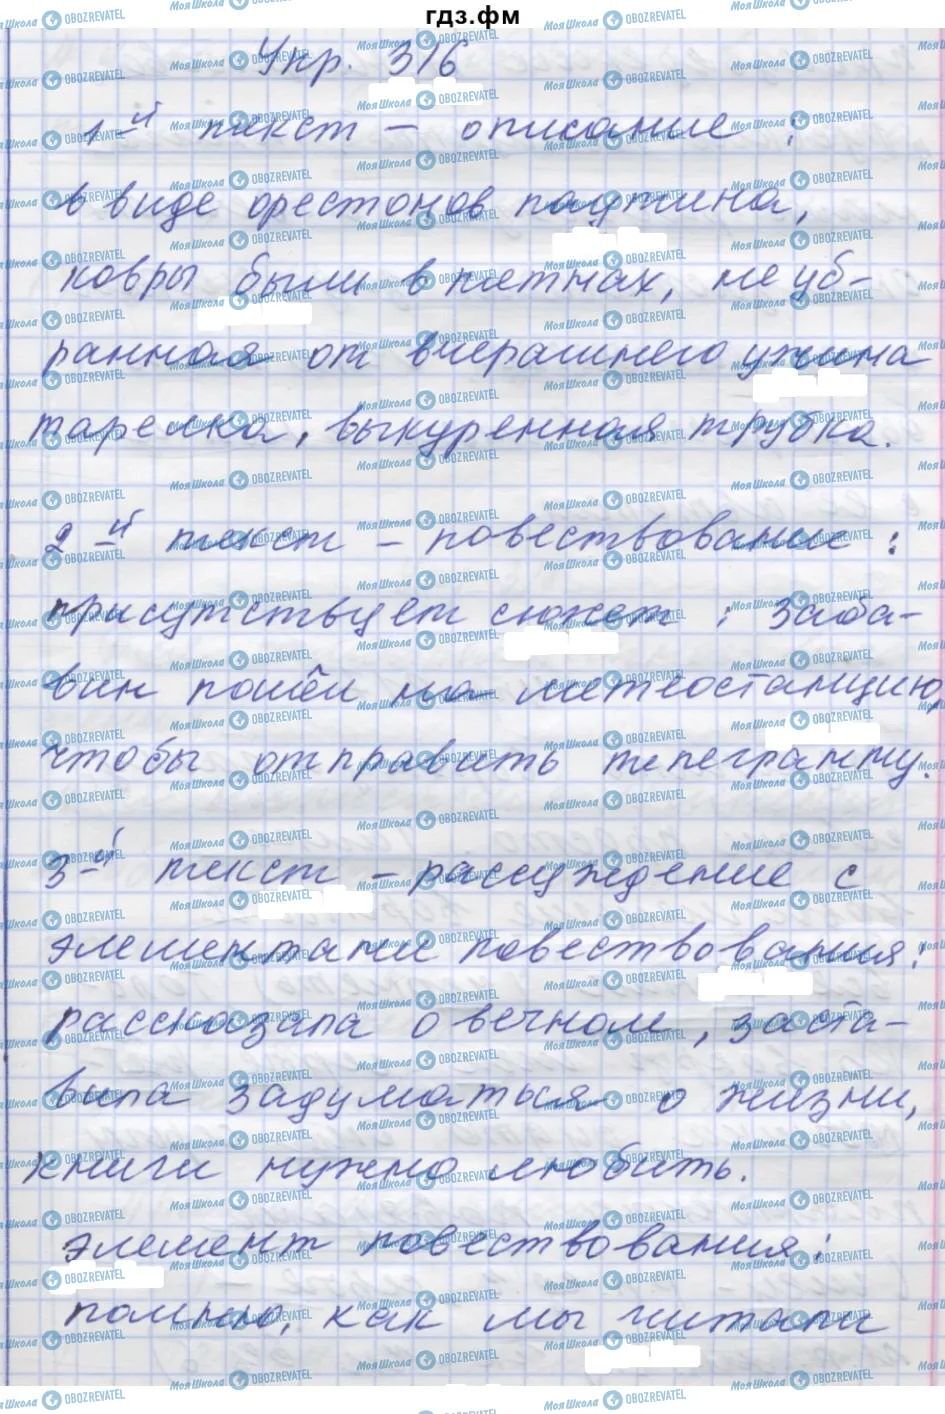 гдз.фм
Упр. 316
1-й текст – описание :
в виде фестонов паутина,
ковры были в пятнах, не уб-
ранная от вчерашнего ужина
тарелка, выкуренная трубка.
2-й текст – повествование :
присутствует сюжет : Заба-
вин пошёл на метеостанцию,
чтобы отправить телеграмму.
3-й текст – рассуждение с
элементами повествования:
рассказала о вечном, заста-
вила задуматься о жизни,
книги нужно любить.
элемент повествования:
помню, как мы читали
МояШкола OBOZREVATEL